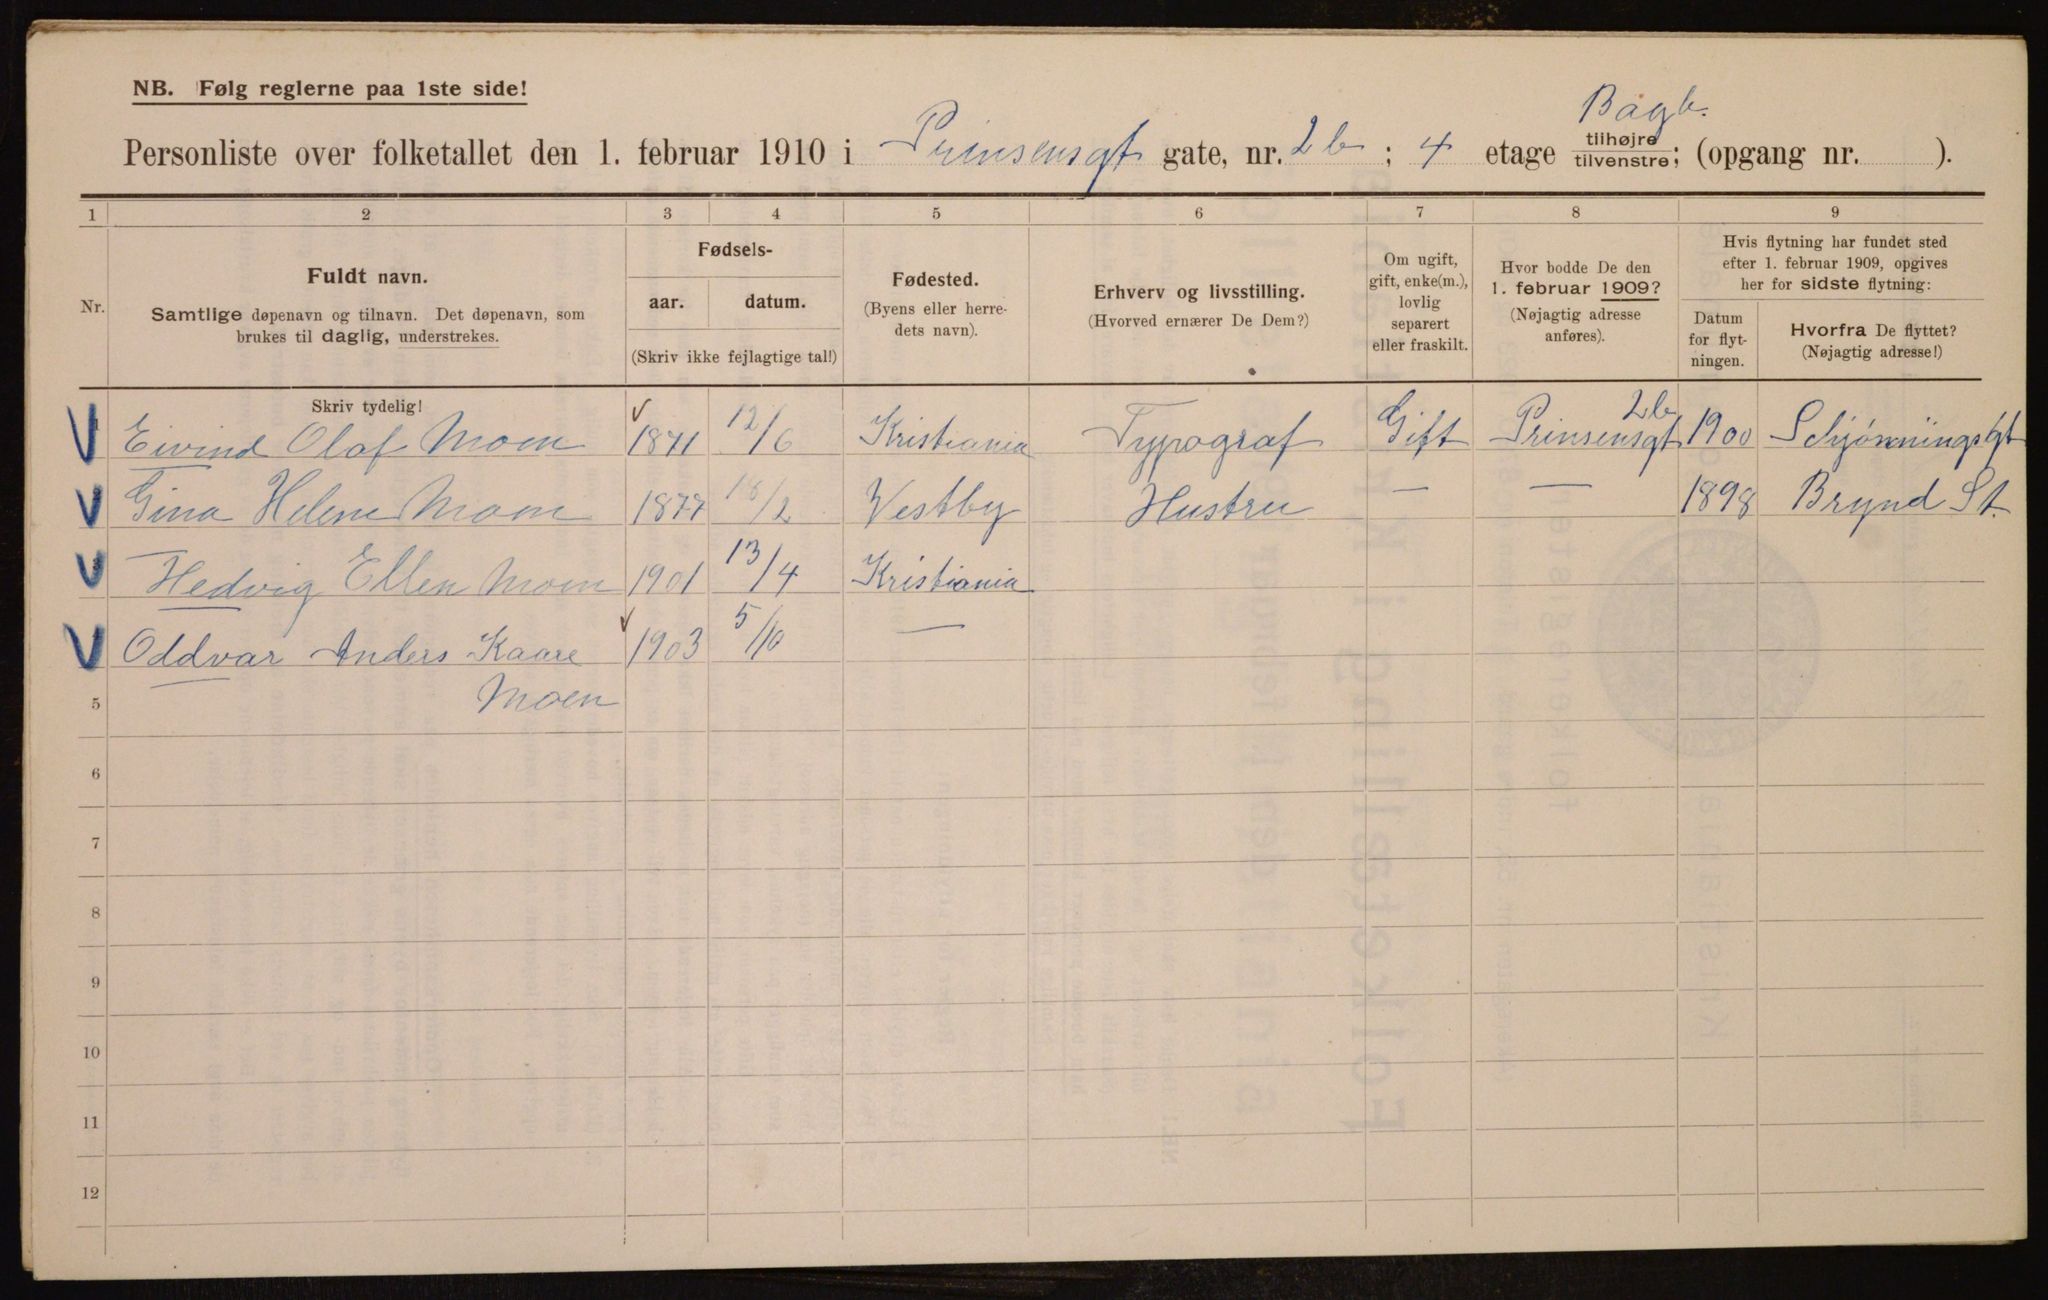 NB. Følg reglerne paa 1ste side!
Bagb.
Personliste over folketallet den 1. februar 1910 i Prinsensgt gate, nr. 2b; 4 etage tilhøjre tilvenstre; (opgang nr. ).
1 2 3 4 5 6 7 8 9
Nr.
Fuldt navn.
Samtlige døpenavn og tilnavn. Det døpenavn, som
brukes til daglig, understrekes.
Fødsels-
aar. datum.
(Skriv ikke fejlagtige tal!)
Fødested.
(Byens eller herre-
dets navn).
Erhverv og livsstilling.
(Hvorved ernærer De Dem?)
Om ugift,
gift, enke(m.),
lovlig
separert
eller fraskilt.
Hvor bodde De den
1. februar 1909?
(Nøjagtig adresse
anføres).
Hvis flytning har fundet sted
efter 1. februar 1909, opgives
her for sidste flytning:
Datum
for flyt-
ningen.
Hvorfra De flyttet?
(Nøjagtig adresse!)
Skriv tydelig!
Eivind Olaf Moen 1871 12/6 Kristiania Typograf Gift Prinsensgt 2b 1900 Schjønningsgt
Gina Helene Moen 1877 /2 Vestby Hustru — — 1898 Brynd St.
Hedvig Ellen Moen 1901 13/4 Kristiania
Oddvar Anders Kaare 1903 5/10 —
Moen
5
6
7
8
9
10
11
12